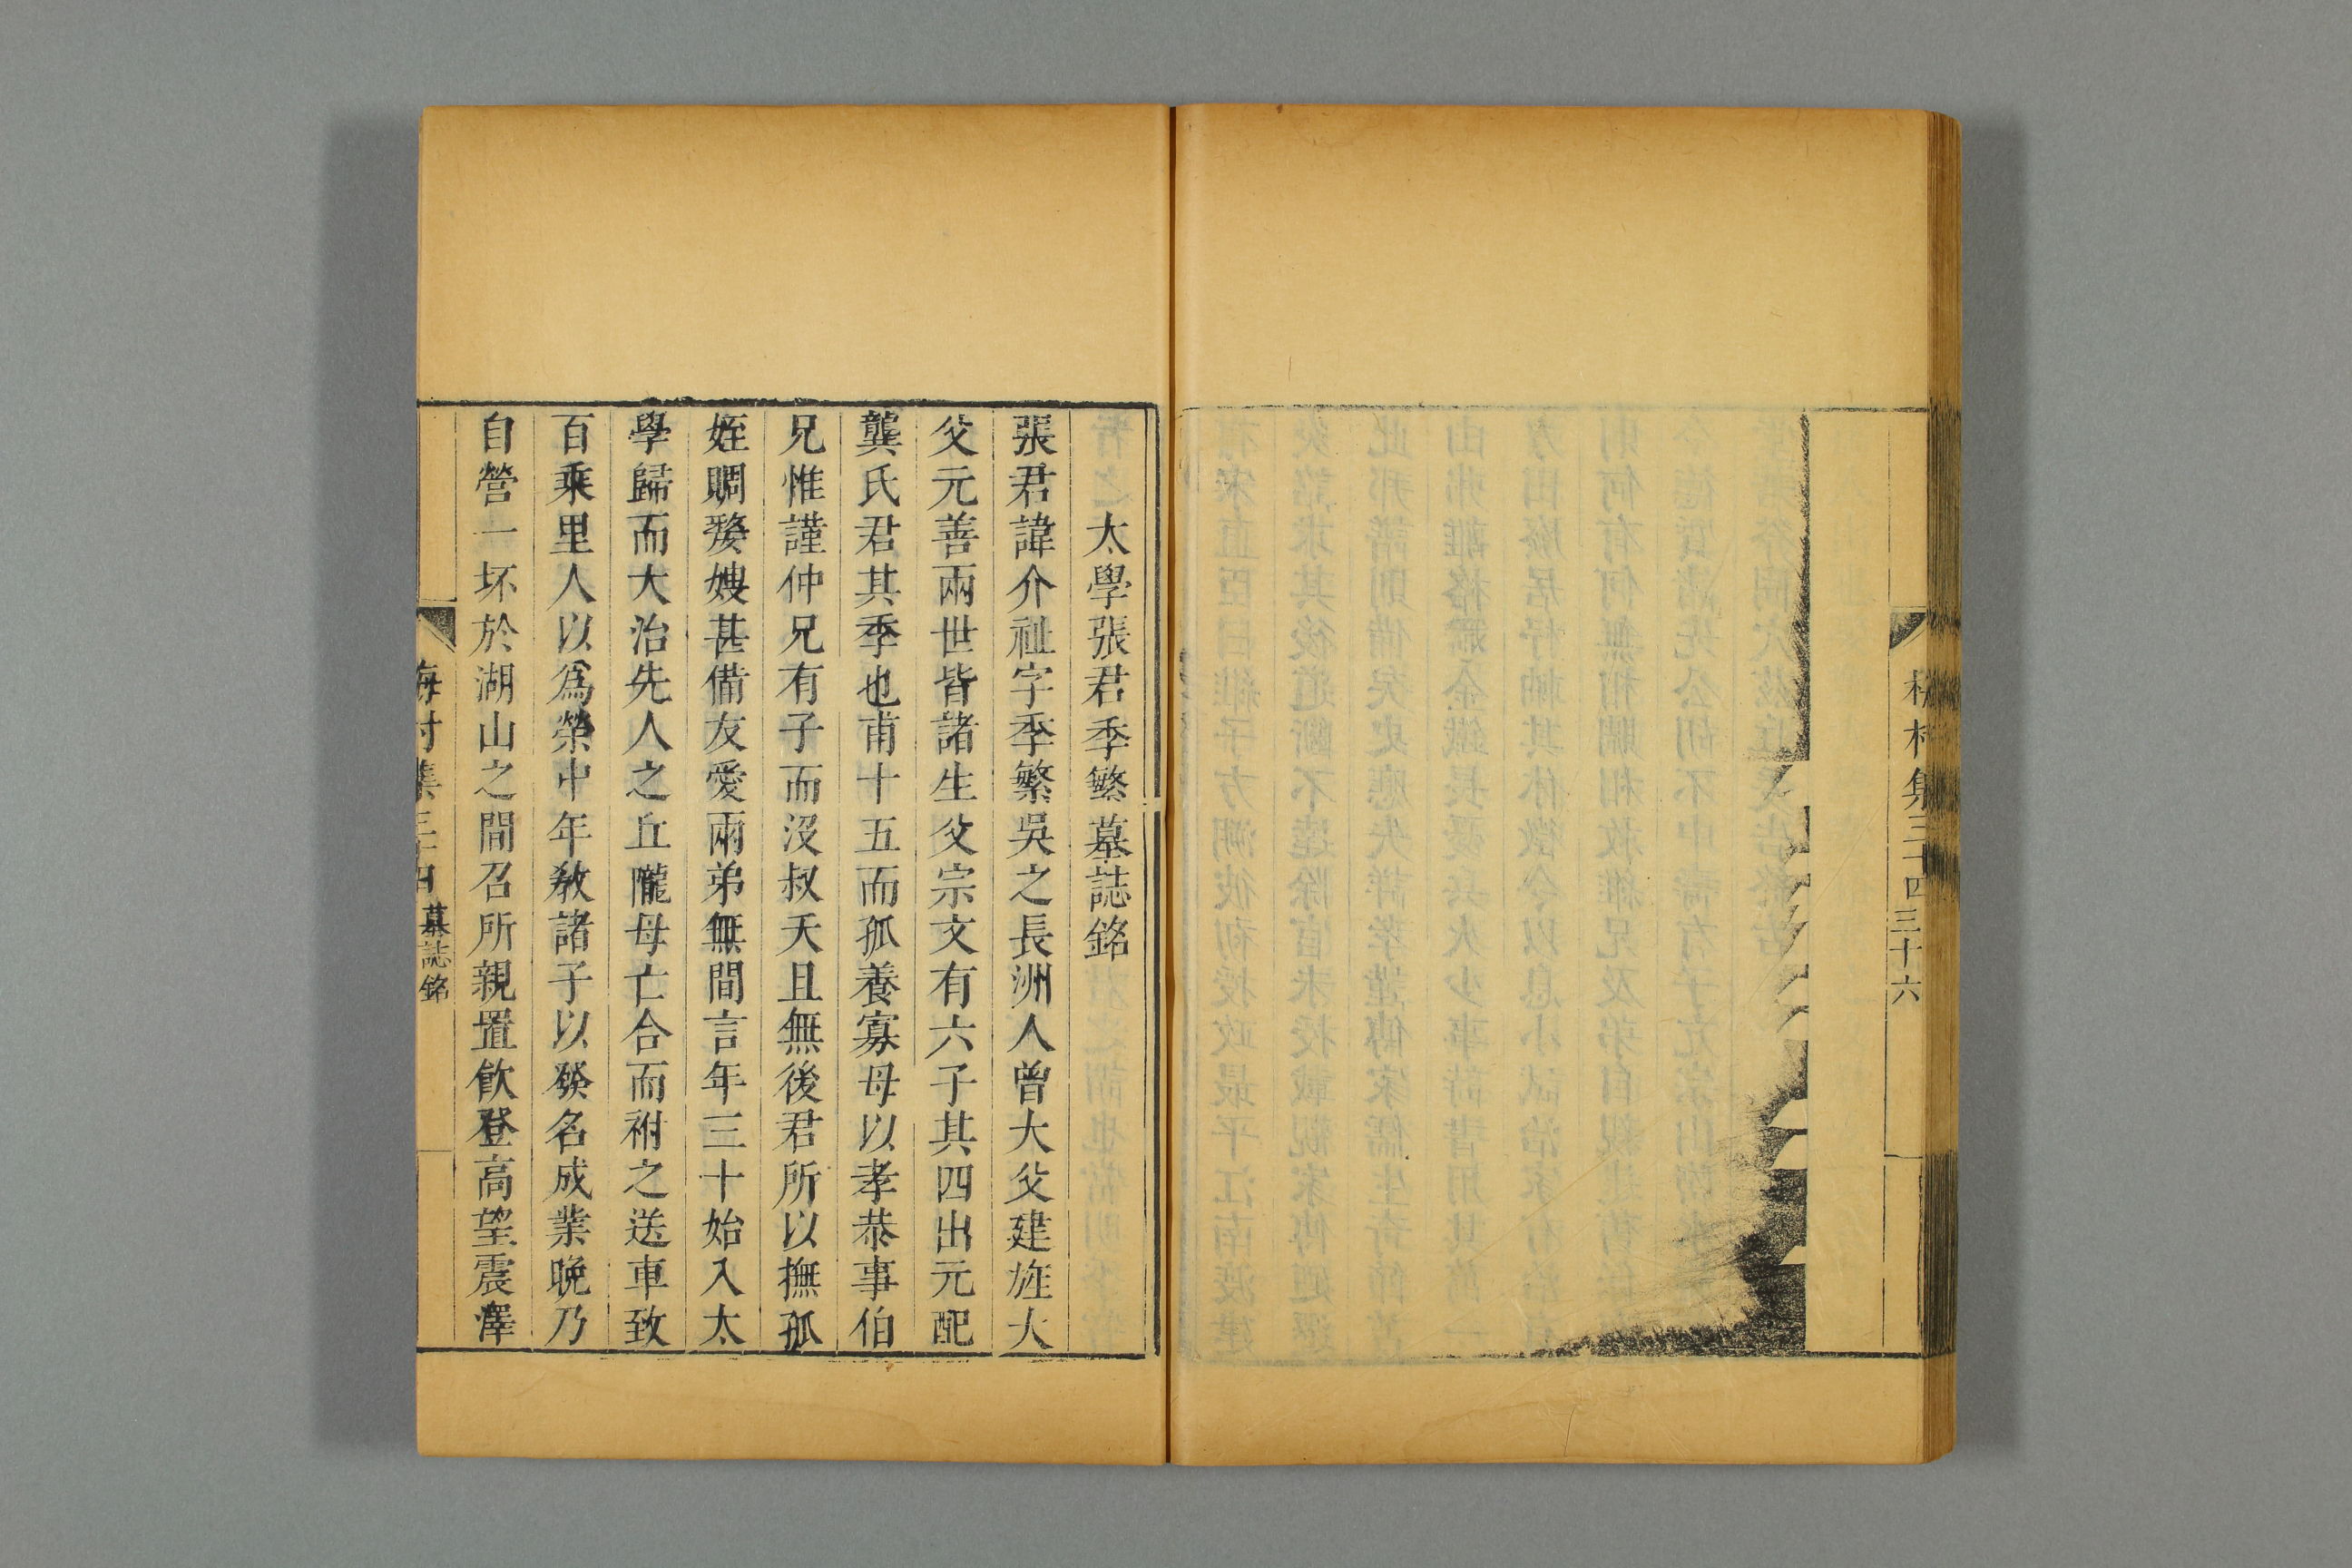 梅村集三十四
三十六
太學張君季繁墓誌銘
張君諱介祉字季繁吳之長洲人曾大父建旌大
父元善兩世皆諸生父宗文有六子其四出元配
龔氏君其季也甫十五而孤養寡母以孝恭事伯
兄惟謹仲兄有子而沒叔夭且無後君所以撫孤
姪賙嫠嫂甚備友愛兩弟無間言年三十始入太
學歸而大治先人之丘隴母亡合而祔之送車致
百乘里人以爲榮中年敎諸子以發名成業晚乃
自營一坏於湖山之間召所親置飮登高望震澤
梅村集三十四
墓誌銘